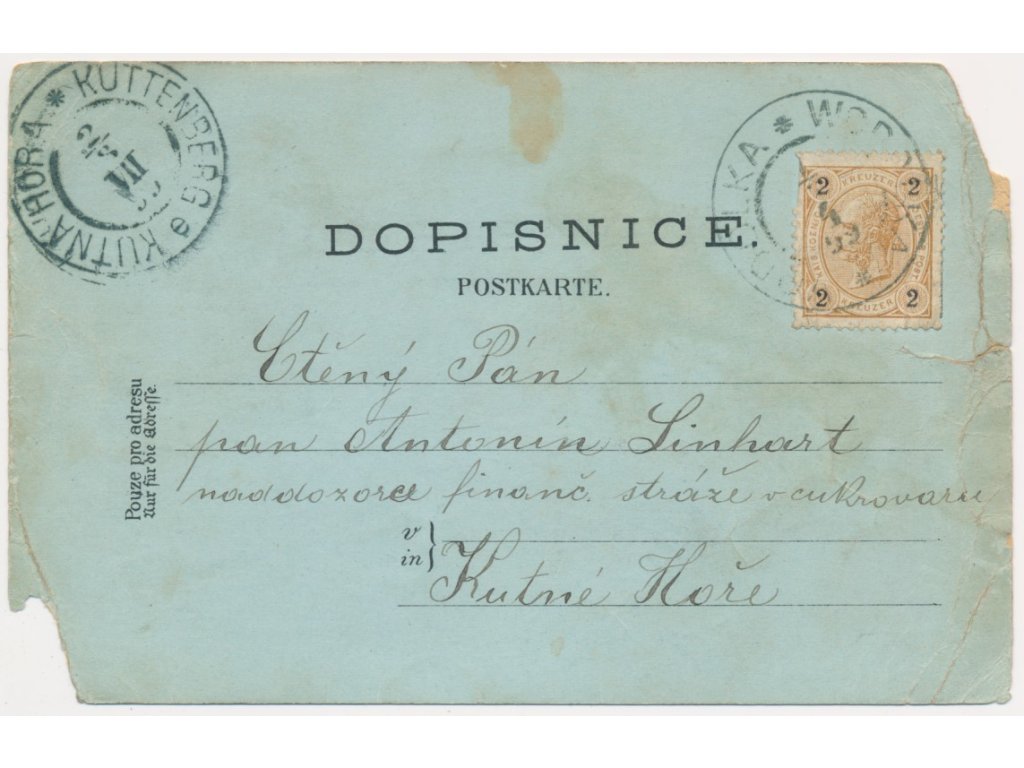 KUTTENBERG e KUTNÁ HORA
VII
KA
2 KREUZER 2
2 KREUZER 2
DOPISNICE.
POSTKARTE.
Pouze pro adresu
Nur für die Adresse.
Ctěný Pán
pan Antonín Linhart
naddozorce finanč. stráže v cukrovaru
v
in
Kutné Hoře